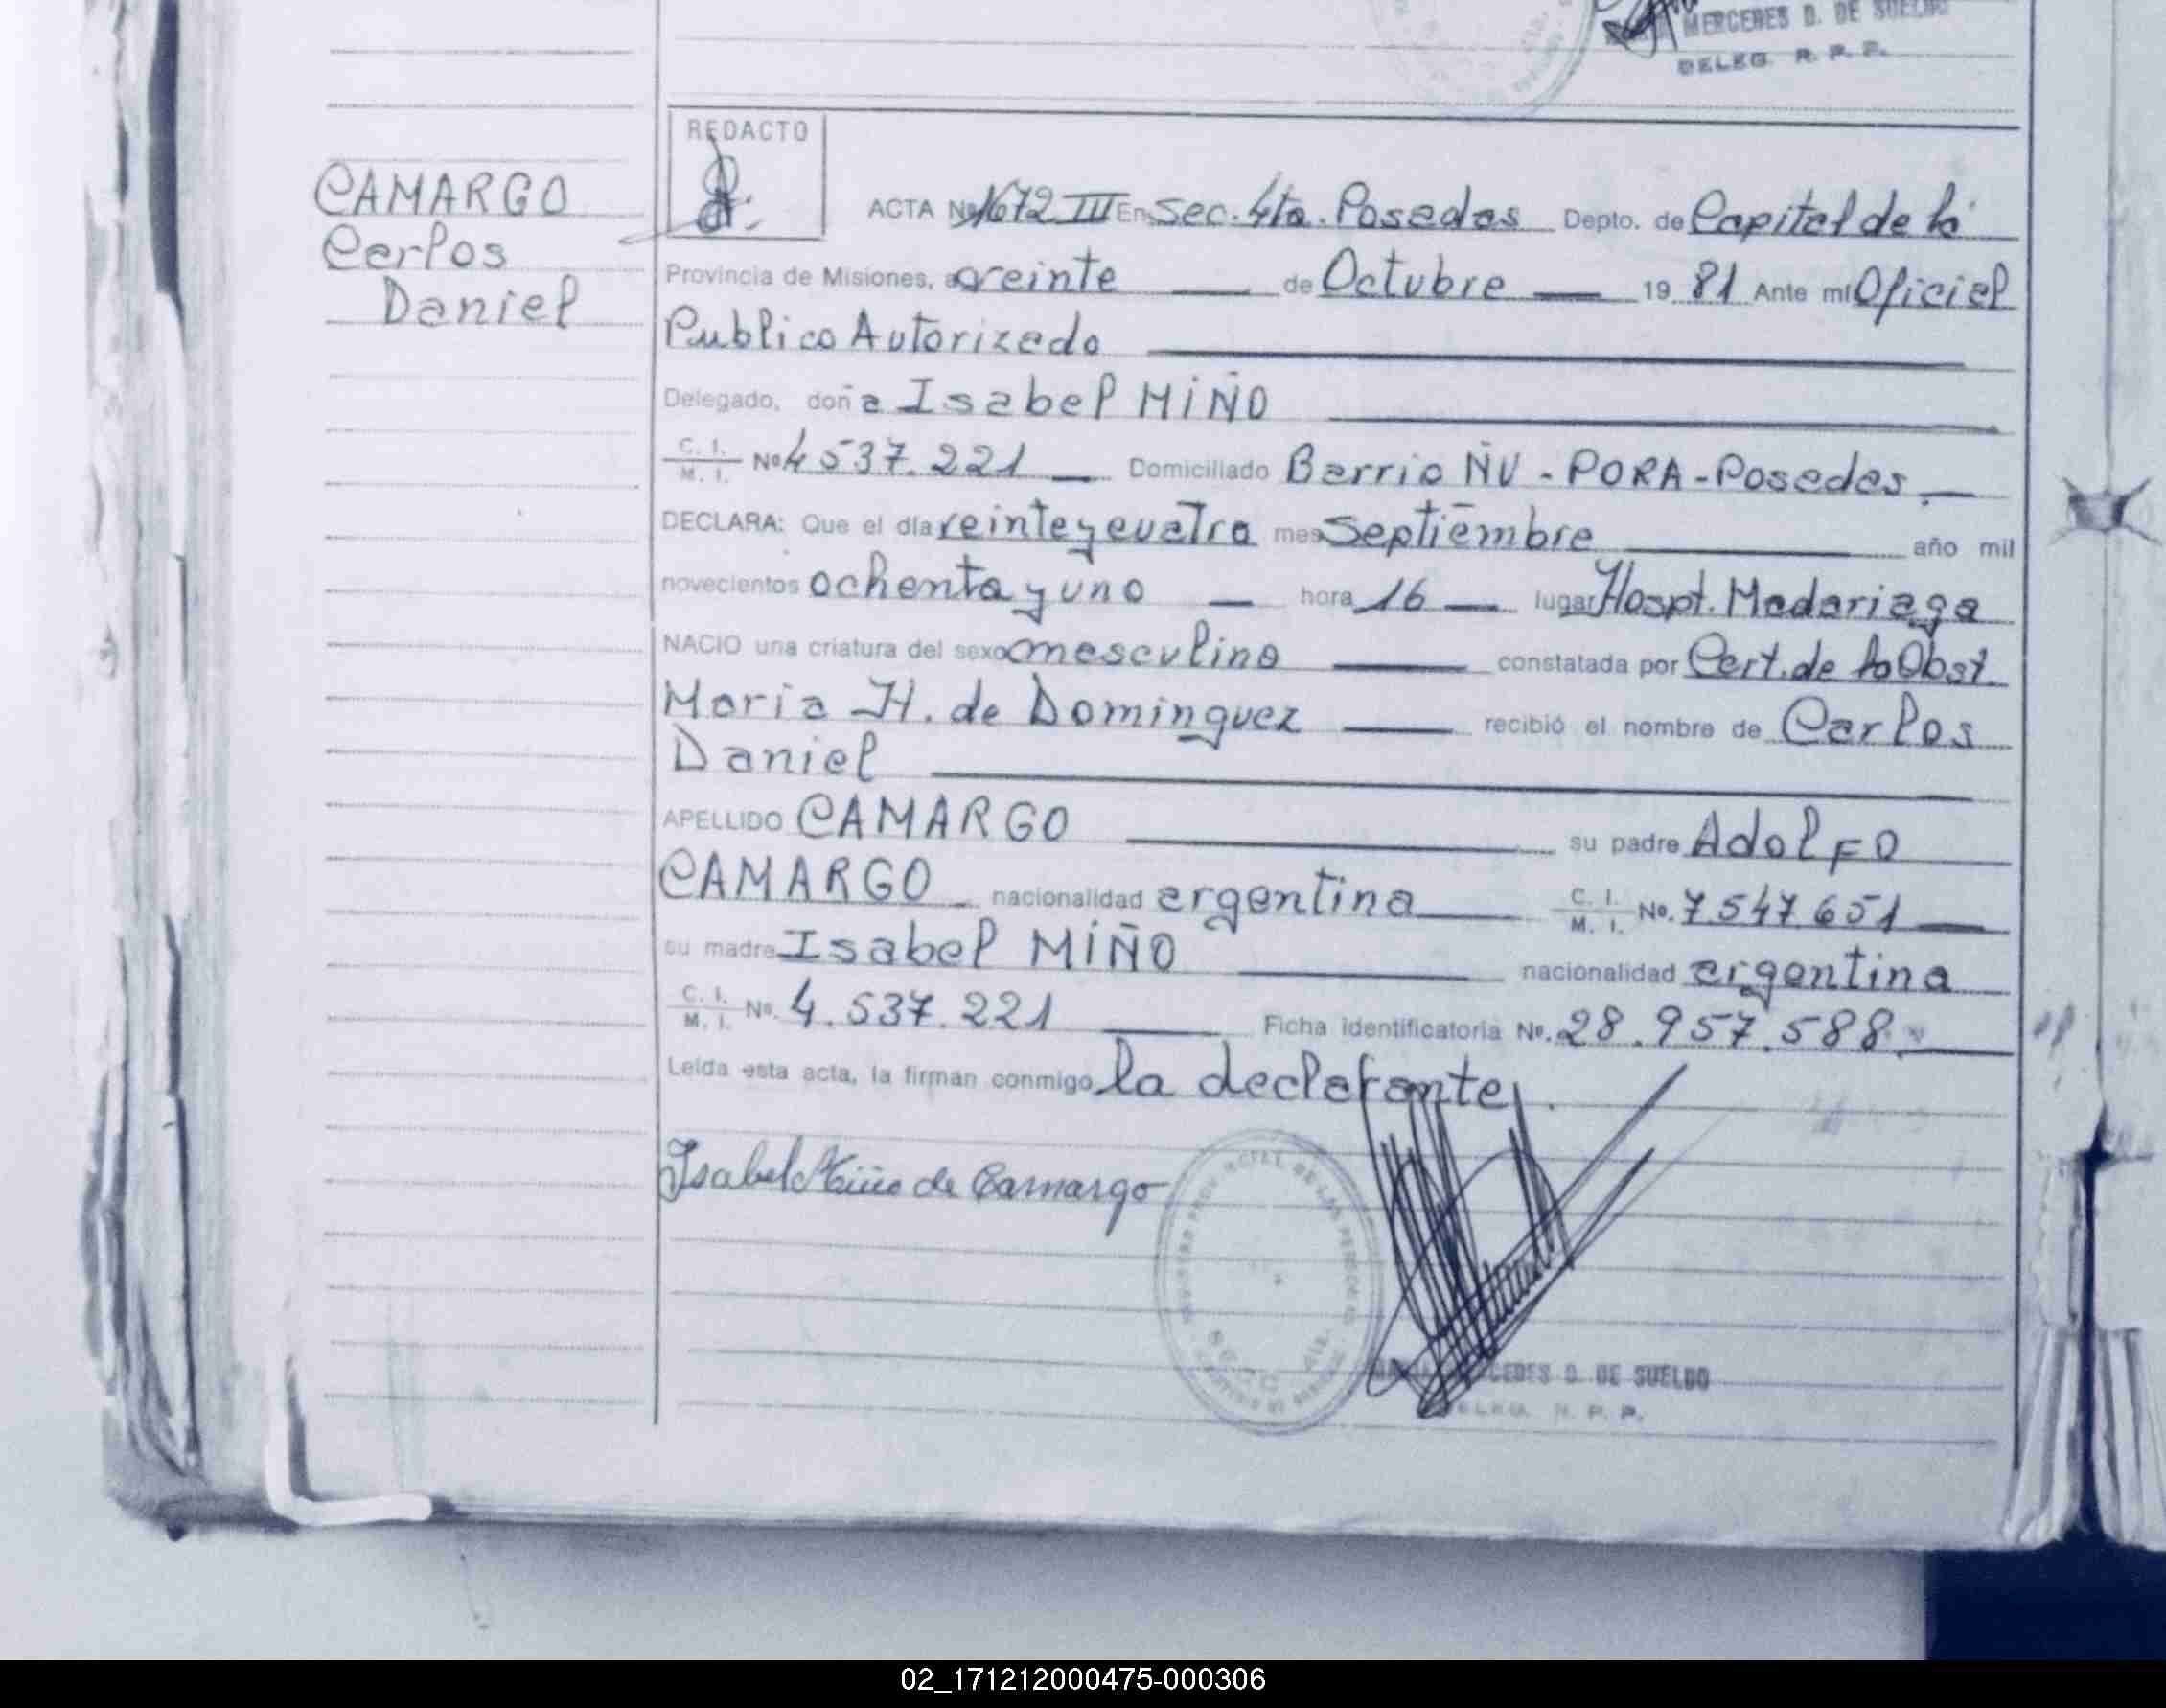 MERCEDES D. DE SUELDO
DELEG. R. P. P.
REDACTO
CAMARGO
Carlos
Daniel
ACTA Nº 1672 III En Sec. 4ta. Posadas Depto. de Capital de la
Provincia de Misiones, a veinte de Octubre 19 81 Ante mí Oficial
Publico Autorizado
Delegado, doña Isabel MIÑO
C. I. / M. I. Nº 4537.221 Domiciliado Barrio ÑU - PORA - Posadas.
DECLARA: Que el día veinte y cuatro mes Septiembre año mil
novecientos ochenta y uno hora 16 lugar Hospt. Madariaga
NACIO una criatura del sexo masculino constatada por Cert. de la Obst.
Maria H. de Dominguez recibió el nombre de Carlos
Daniel
APELLIDO CAMARGO su padre Adolfo
CAMARGO nacionalidad argentina C. I. / M. I. No. 7.547.651
su madre Isabel MIÑO nacionalidad argentina
C. I. / M. I. No. 4.537.221 Ficha identificatoria No. 28.957.588
Leída esta acta, la firman conmigo la declarante.
Isabel Miño de Camargo
CEDES D. DE SUELDO
DELEG. R. P. P.
02_171212000475-000306